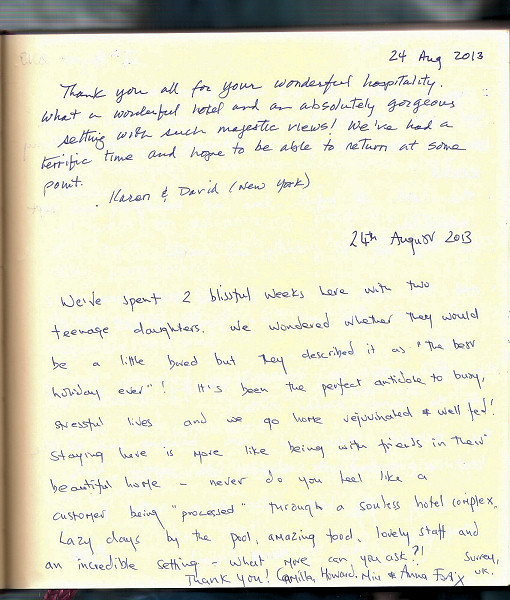 24 Aug 2013
Thank you all for your wonderful hospitality.
What a wonderful hotel and an absolutely gorgeous
setting with such majestic views! We've had a
terrific time and hope to be able to return at some
point.
Karen & David (New York)
24th August 2013
We've spent 2 blissful weeks here with two
teenage daughters. We wondered whether they would
be a little bored but they described it as "the best
holiday ever"! It's been the perfect antidote to busy,
stressful lives and we go home rejuvinated & well fed!
Staying here is more like being with friends in their
beautiful home - never do you feel like a
customer being "processed" through a souless hotel complex.
Lazy days by the pool, amazing food, lovely staff and
an incredible setting - what more can you ask?!
Thank you! Camilla, Howard, & Anna
Surrey,
UK.